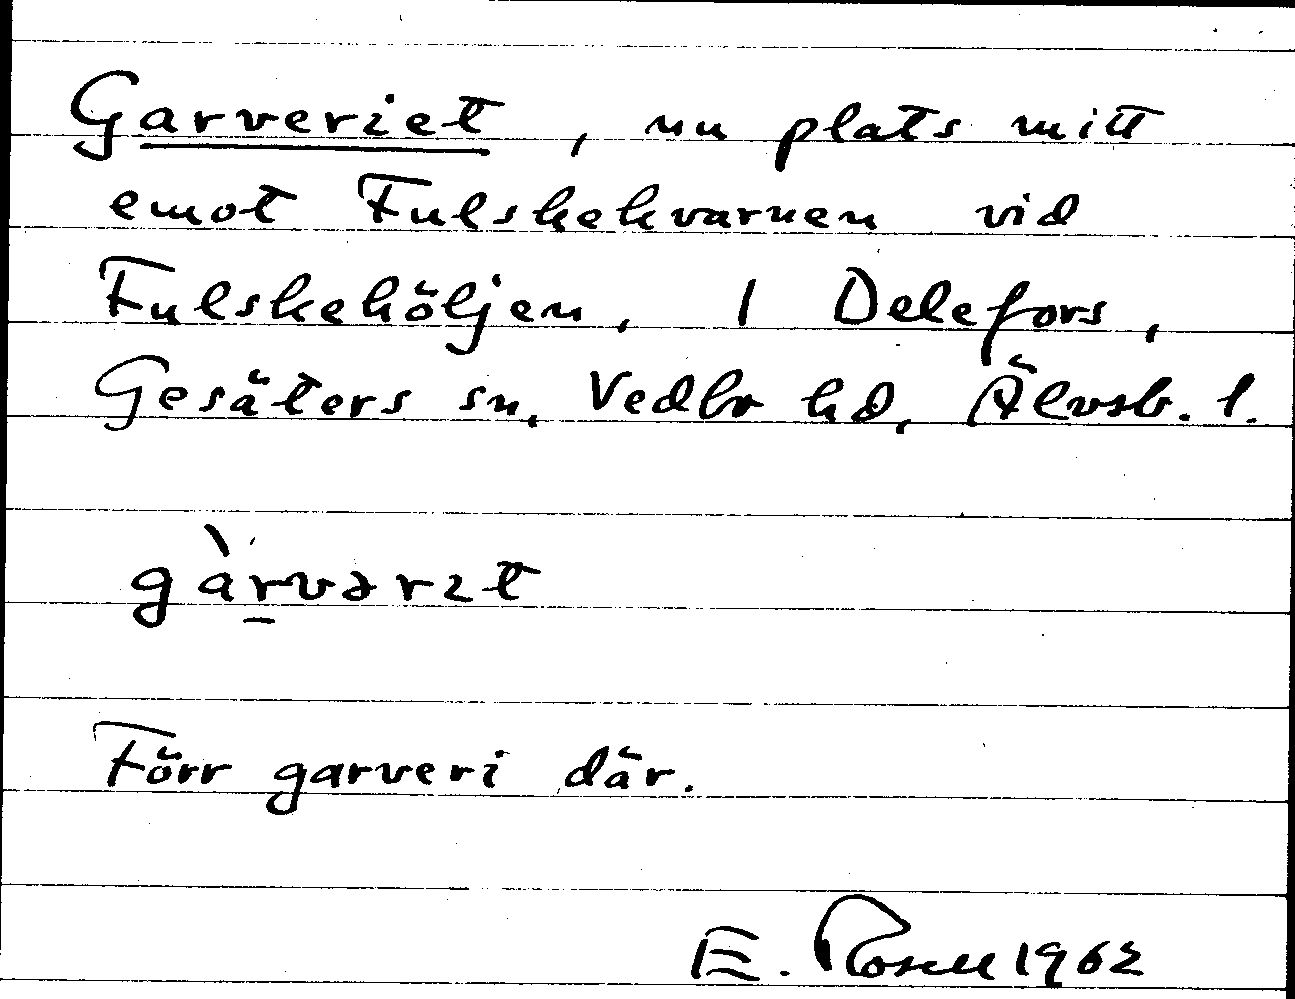 Garveriet, nu plats mitt
emot Fulskekvarnen vid
Fulskehöljen, 1 Delefors,
Gesäters sn, Vedbo hd, Älvsb. l.
gàrvərɩt
Förr garveri där.
E. Rosell 1962